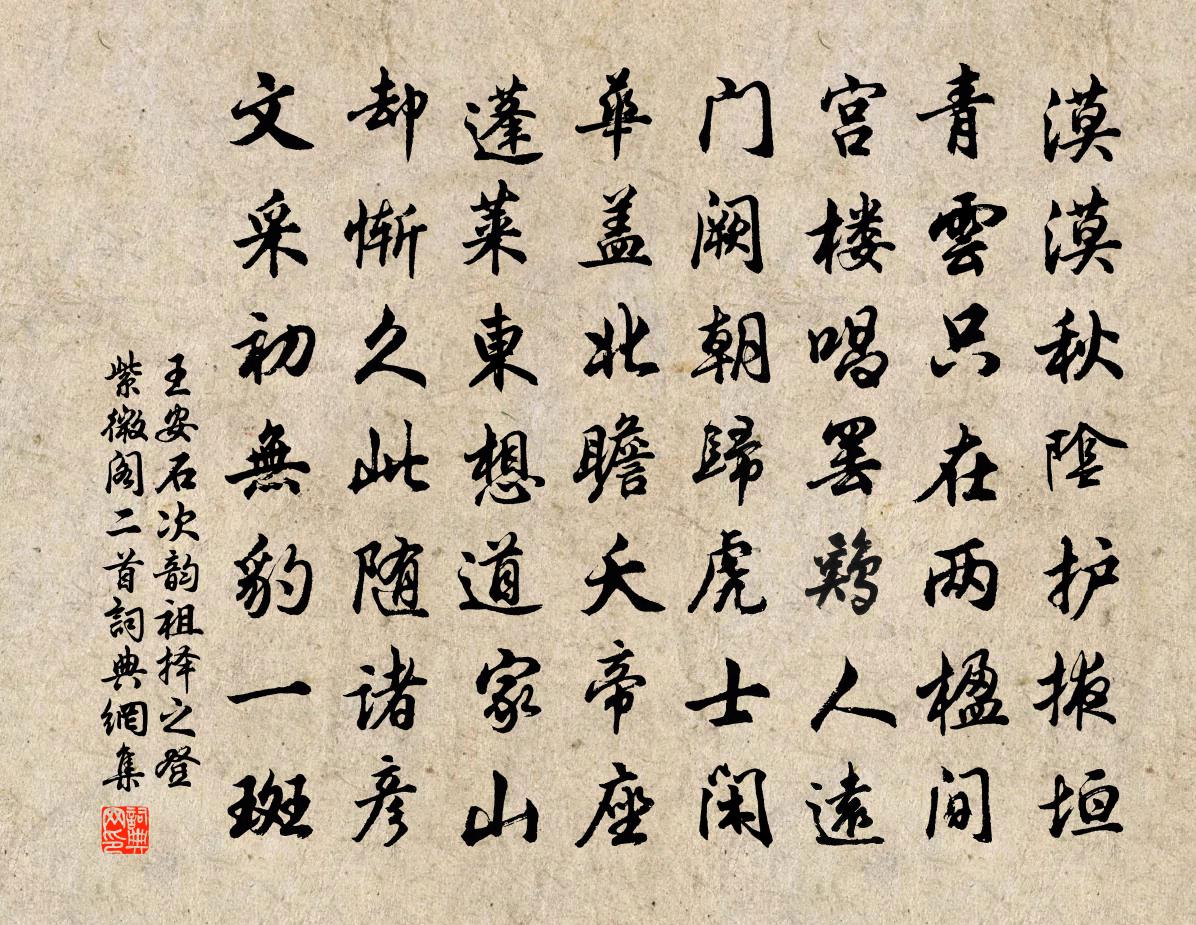 漠漠秋陰护掖垣
青雲只在两楹间
宫楼唱罢鶏人遠
门阙朝歸虎士闲
華盖北瞻天帝座
蓬莱東想道家山
却惭久此随诸彦
文采初無豹一斑
王安石次韵祖择之登
紫微阁二首詞典網集
詞典网印